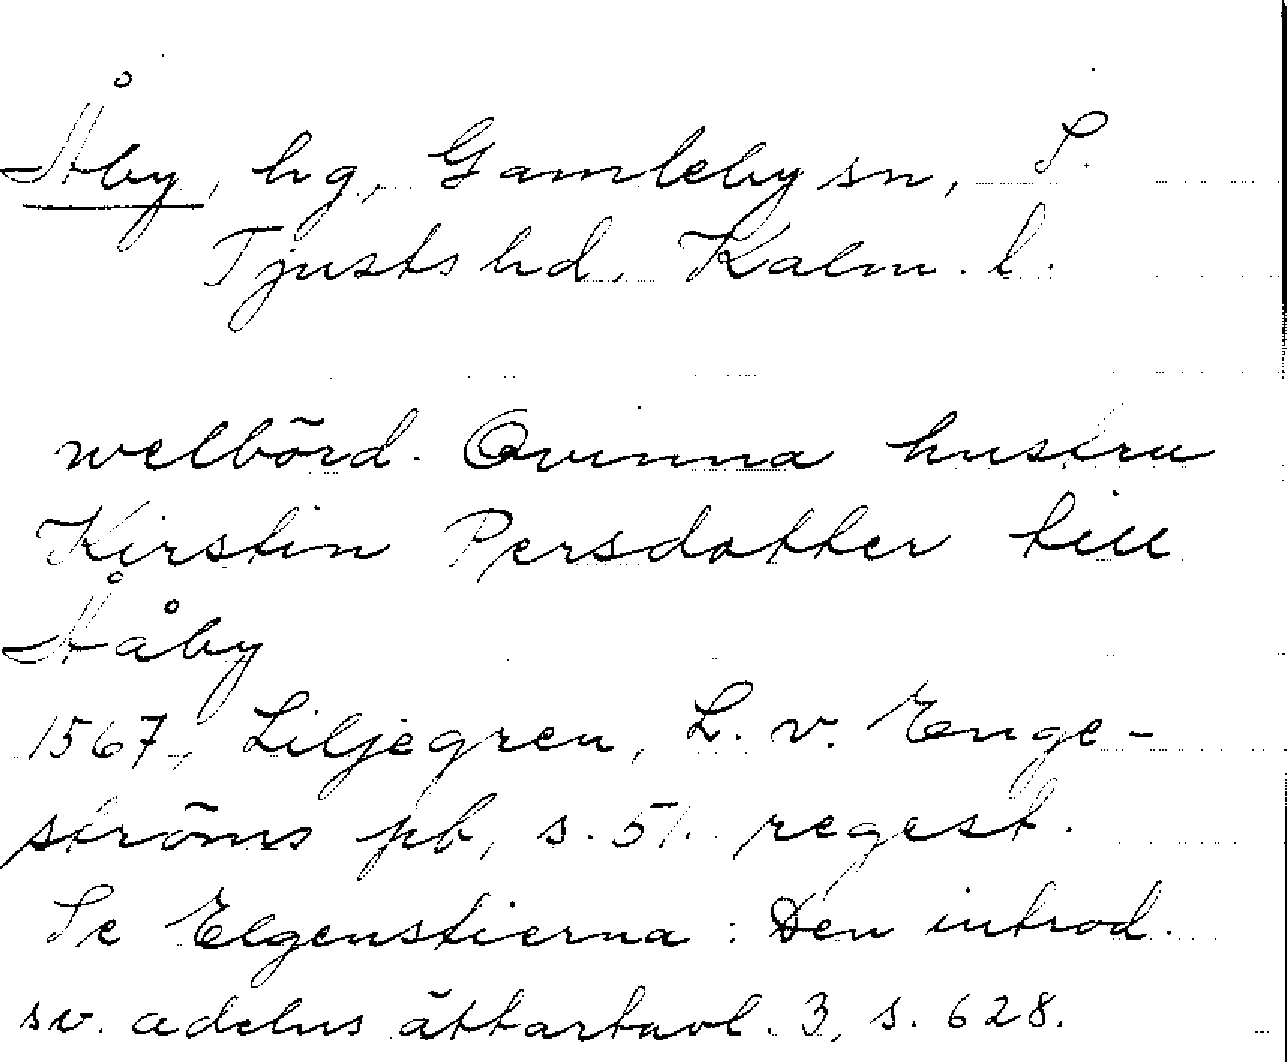 Åby, hg, Gamleby sn, S.
Tjusts hd, Kalm. l.
welbörd. Qvinna hustru
Kirstin Persdotter till
Ååby
1567, Liljegren, L. v. Enge-
ströms pb, s. 51. regest.
Se Elgenstierna: Den introd.
sv. adelns ättartavl. 3, s. 628.